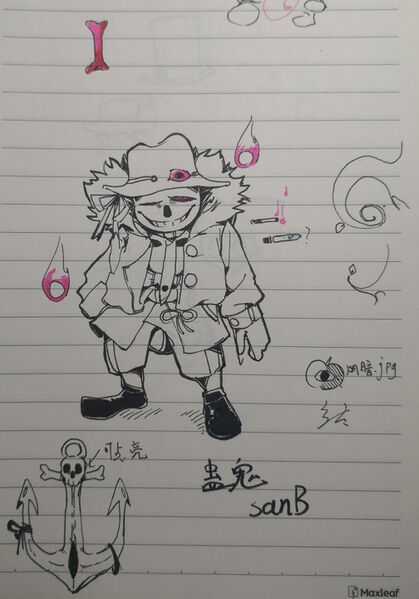 ?
阴暗.jpg
蛊鬼
sanB
Maxleaf